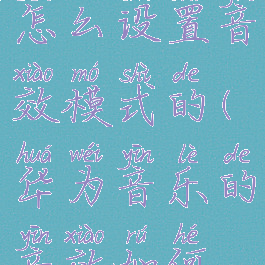 怎么设置音
xiào mó shì de
效模式的(
huá wéi yīn lè de
华为音乐的
yīn xiào rú hé
音效如何